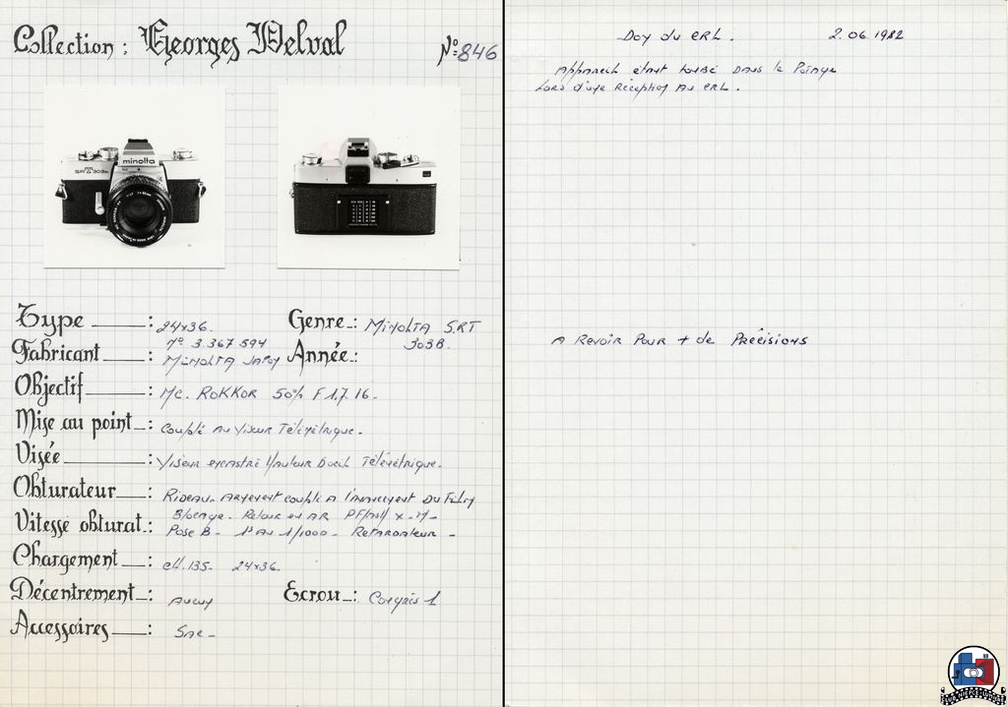 Collection : Georges Delval
N°: 846
minolta
Type : 24x36.
Genre : Minolta SRT
303B.
N° 3 367 594
Fabricant : Minolta Japon
Année :
Objectif : Mc. ROKKOR 50% F 1.7 16.
Mise au point : Couplé Au Viseur Télémétrique.
Visée : Viseur Hauteur D'oeil Télémétrique.
Obturateur : Rideau. Armement couplé A l'Avancement Du Film
Blocage. Retour en AR PF/M/X
Vitesse obturat. : Pose B - 1s Au 1/1000 - Retardateur -
Chargement : ch. 135. 24x36.
Décentrement : Aucun
Ecrou : Congrès 1
Accessoires : Sac -
Don du CRL. 2.06.1982
Appareil étant tombé Dans la
Lors d'une Réception Au CRL.
A Revoir Pour + de Précisions